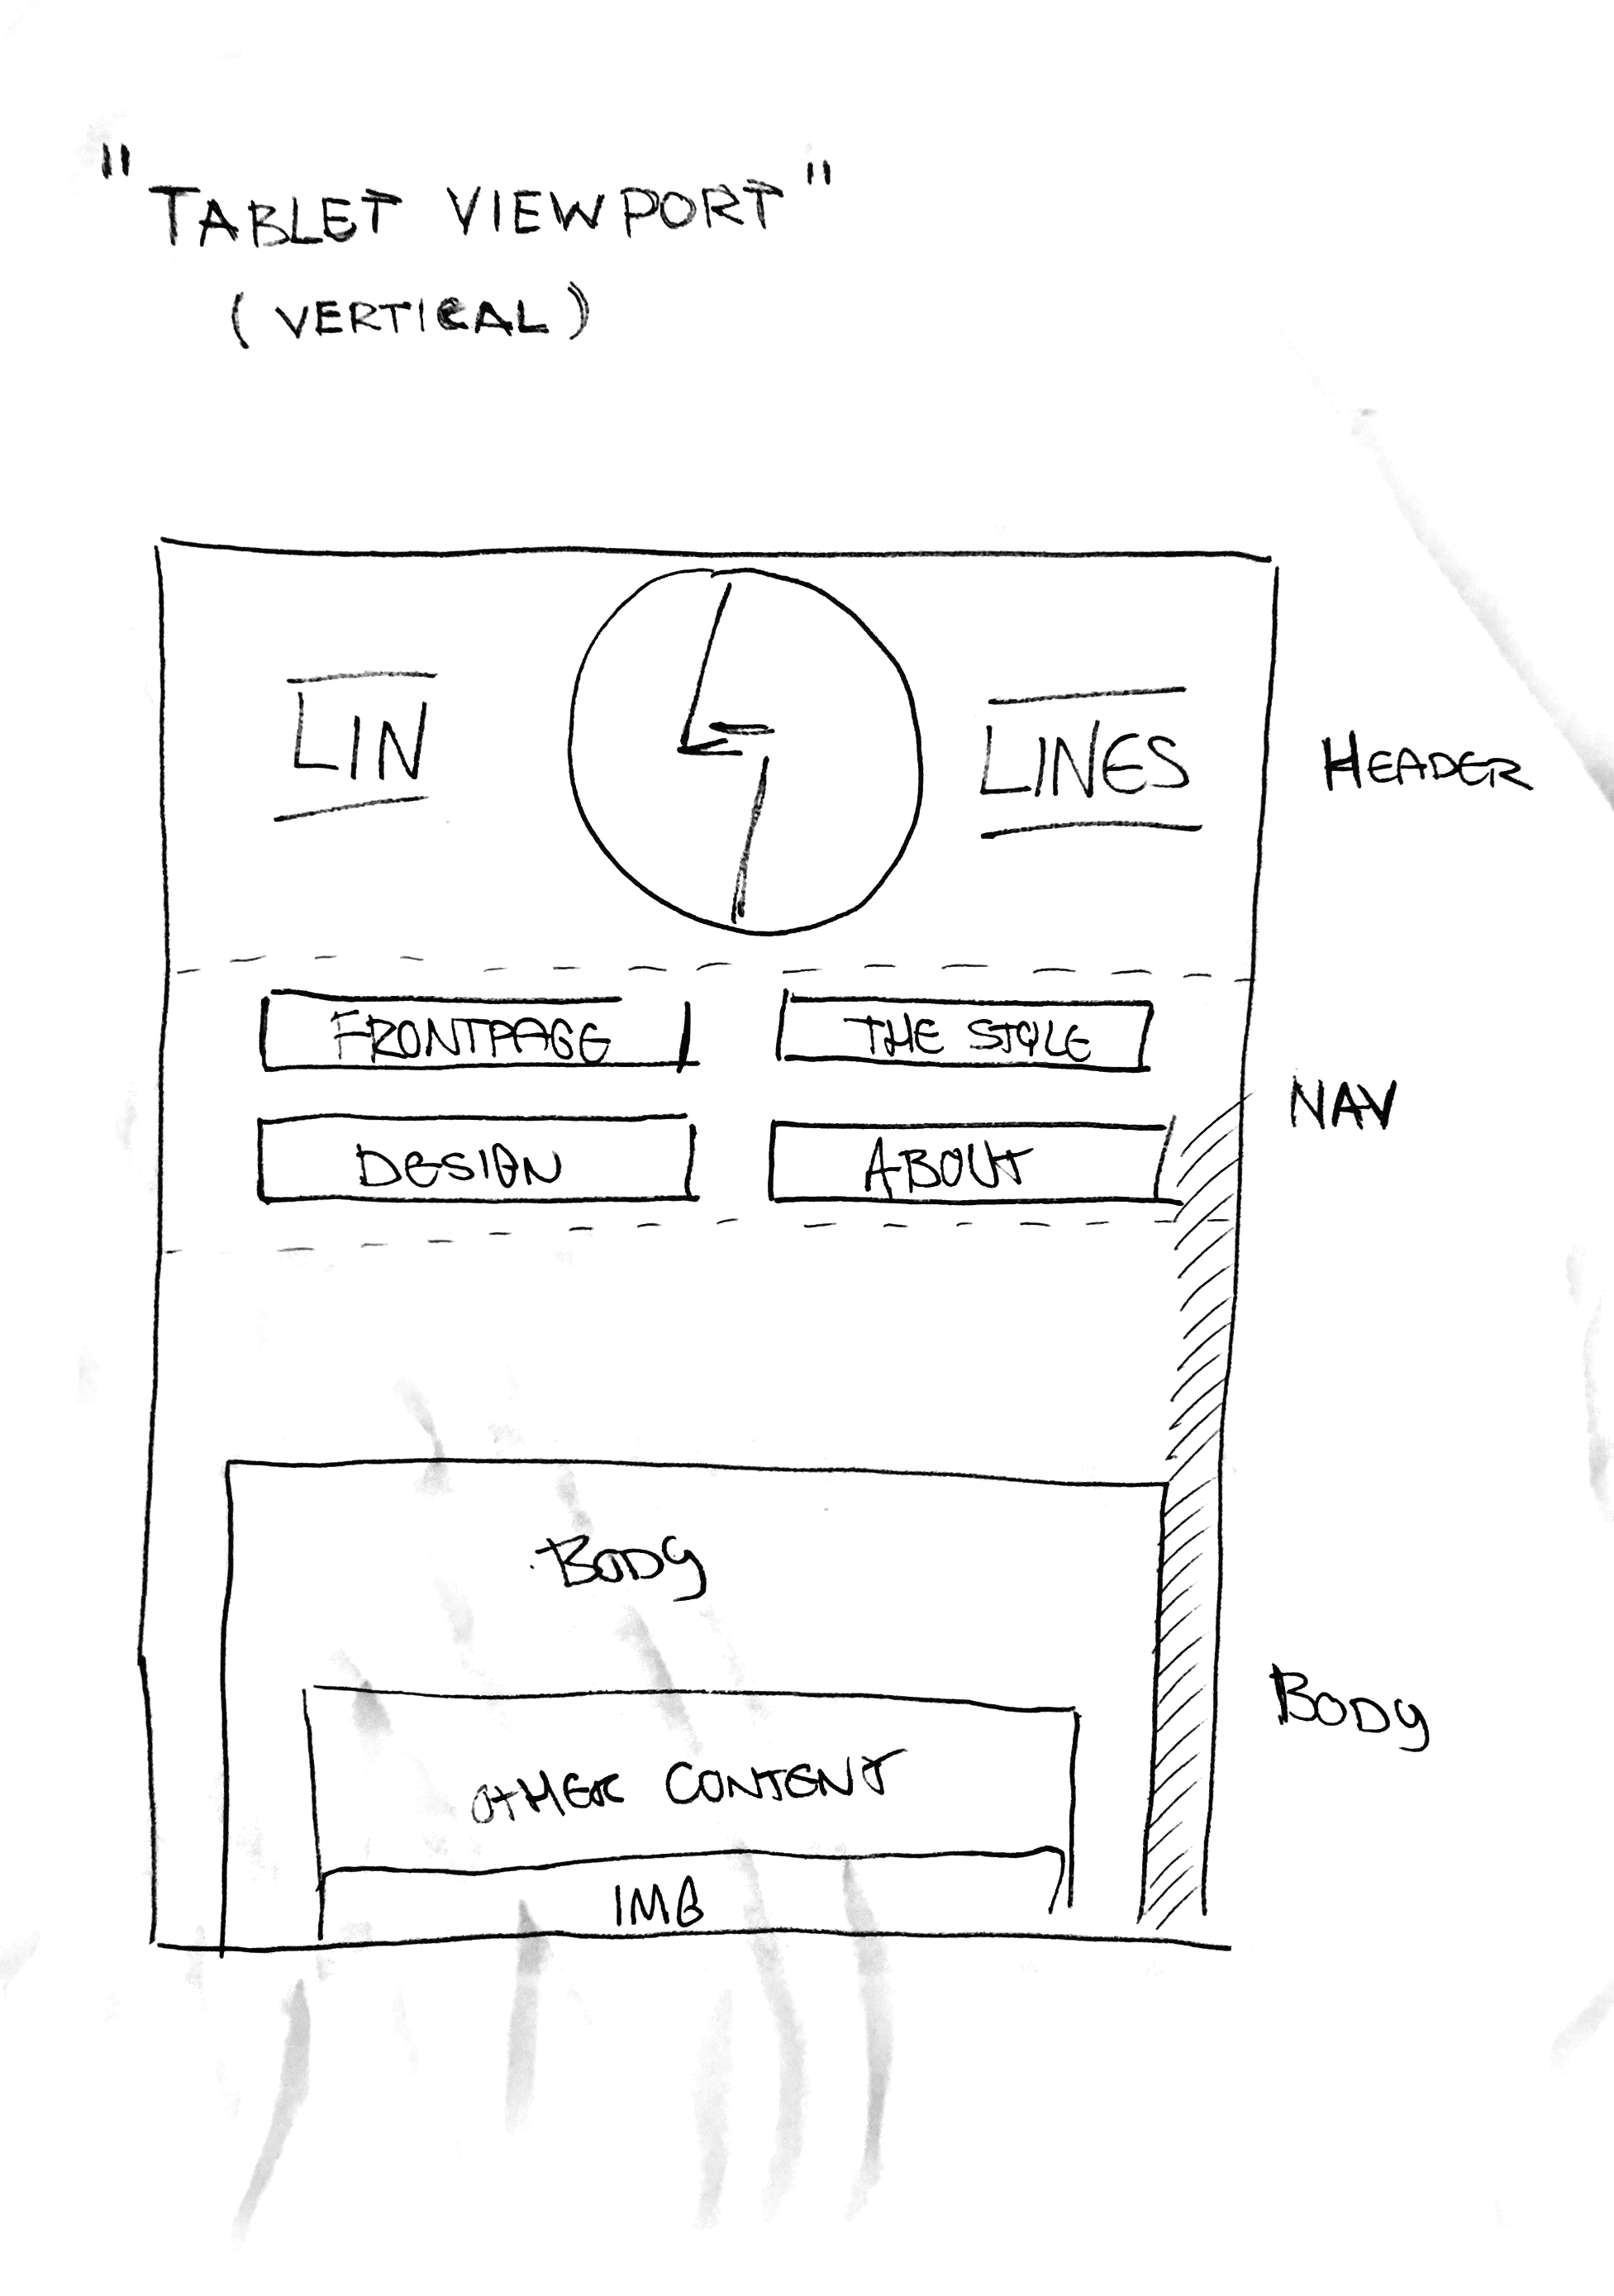 "TABLET VIEWPORT"
(VERTICAL)
LIN LINES
HEADER
FRONTPAGE THE STYLE
NAV
DESIGN ABOUT
BODY
BODY
OTHER CONTENT
IMG